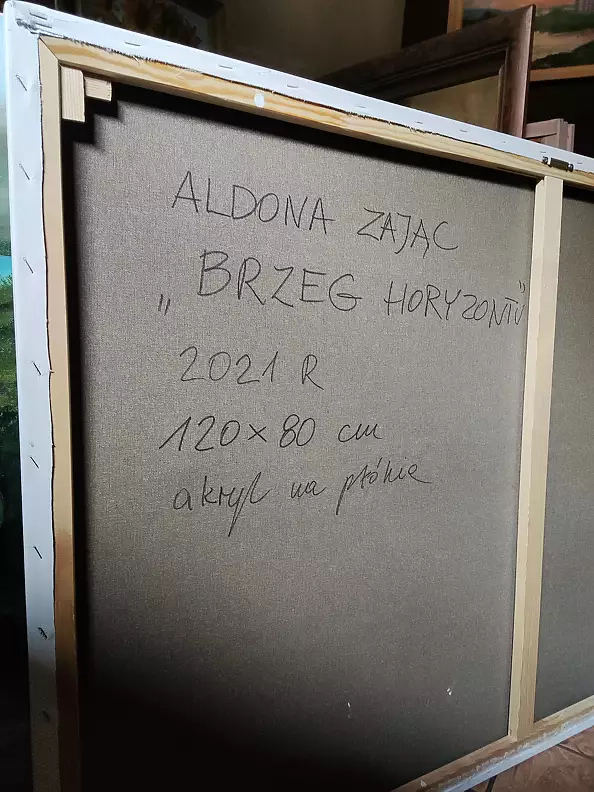 ALDONA ZAJĄC
„BRZEG HORYZONTU”
2021 R
120 x 80 cm
akryl na płótnie